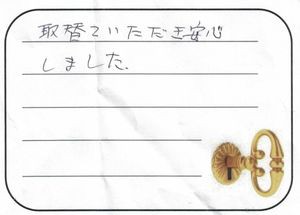 取替ていただき安心
しました.